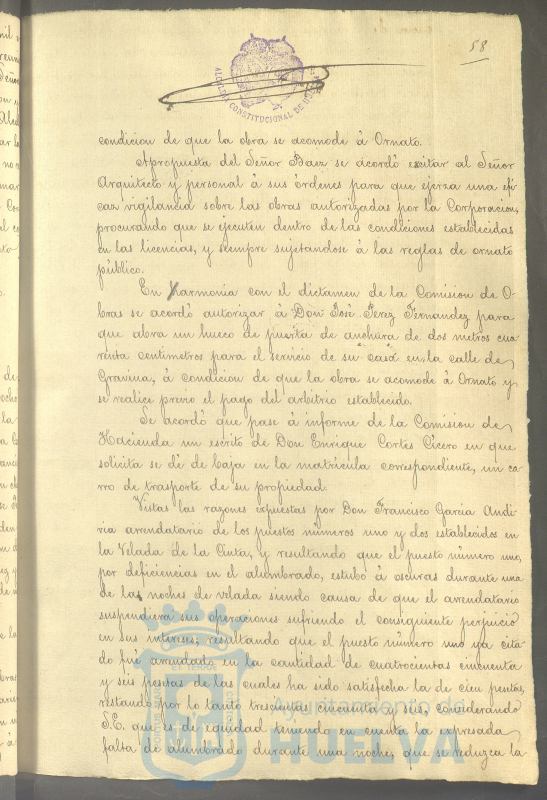 58
ALCALDIA CONSTITUCIONAL DE HUELVA
condicion de que la obra se acomode á Ornato.
Apropuesta del Señor Baez se acordó exitar al Señor
Arquitecto y personal á sus órdenes para que ejerza una efi
caz vigilancia sobre las obras autorizadas por la Corporacion,
procurando que se ejecuten dentro de las condiciones establecidas
en las licencias, y siempre sujetandose á las reglas de ornato
público.
En harmonia con el dictamen de la Comision de O-
bras se acordó autorizar á Don José Perez Fernandez para
que abra un hueco de puerta de anchura de dos metros cua
renta centimetros para el servicio de su casa en la calle de
Gravina, á condicion de que la obra se acomode á Ornato y
se realice previo el pago del arbitrio establecido.
Se acordó que pase á informe de la Comision de
Hacienda un escrito de Don Enrique Cortes Cicero en que
solicita se dé de baja en la matricula correspondiente, un ca
rro de trasporte de su propiedad.
Vistas las razones expuestas por Don Francisco Garcia Andi
ria arrendatario de los puestos números uno y dos establecidos en
la Velada de la Cinta, y resultando que el puesto número uno,
por deficiencias en el alumbrado, estubo á oscuras durante una
de las noches de velada siendo causa de que el arrendatario
suspendiera sus operaciones sufriendo el consiguiente perjuicio
en sus intereses; resultando que el puesto número uno ya cita
do fué arrendado en la cantidad de cuatrocientas cincuenta
y seis pesetas de las cuales ha sido satisfecha la de cien pesetas,
restando por lo tanto trescientas cincuenta y seis, considerando
S.E. que es de equidad teniendo en cuenta la expresada
falta de alumbrado durante una noche, que se reduzca la
Ayuntamiento de
HUELVA